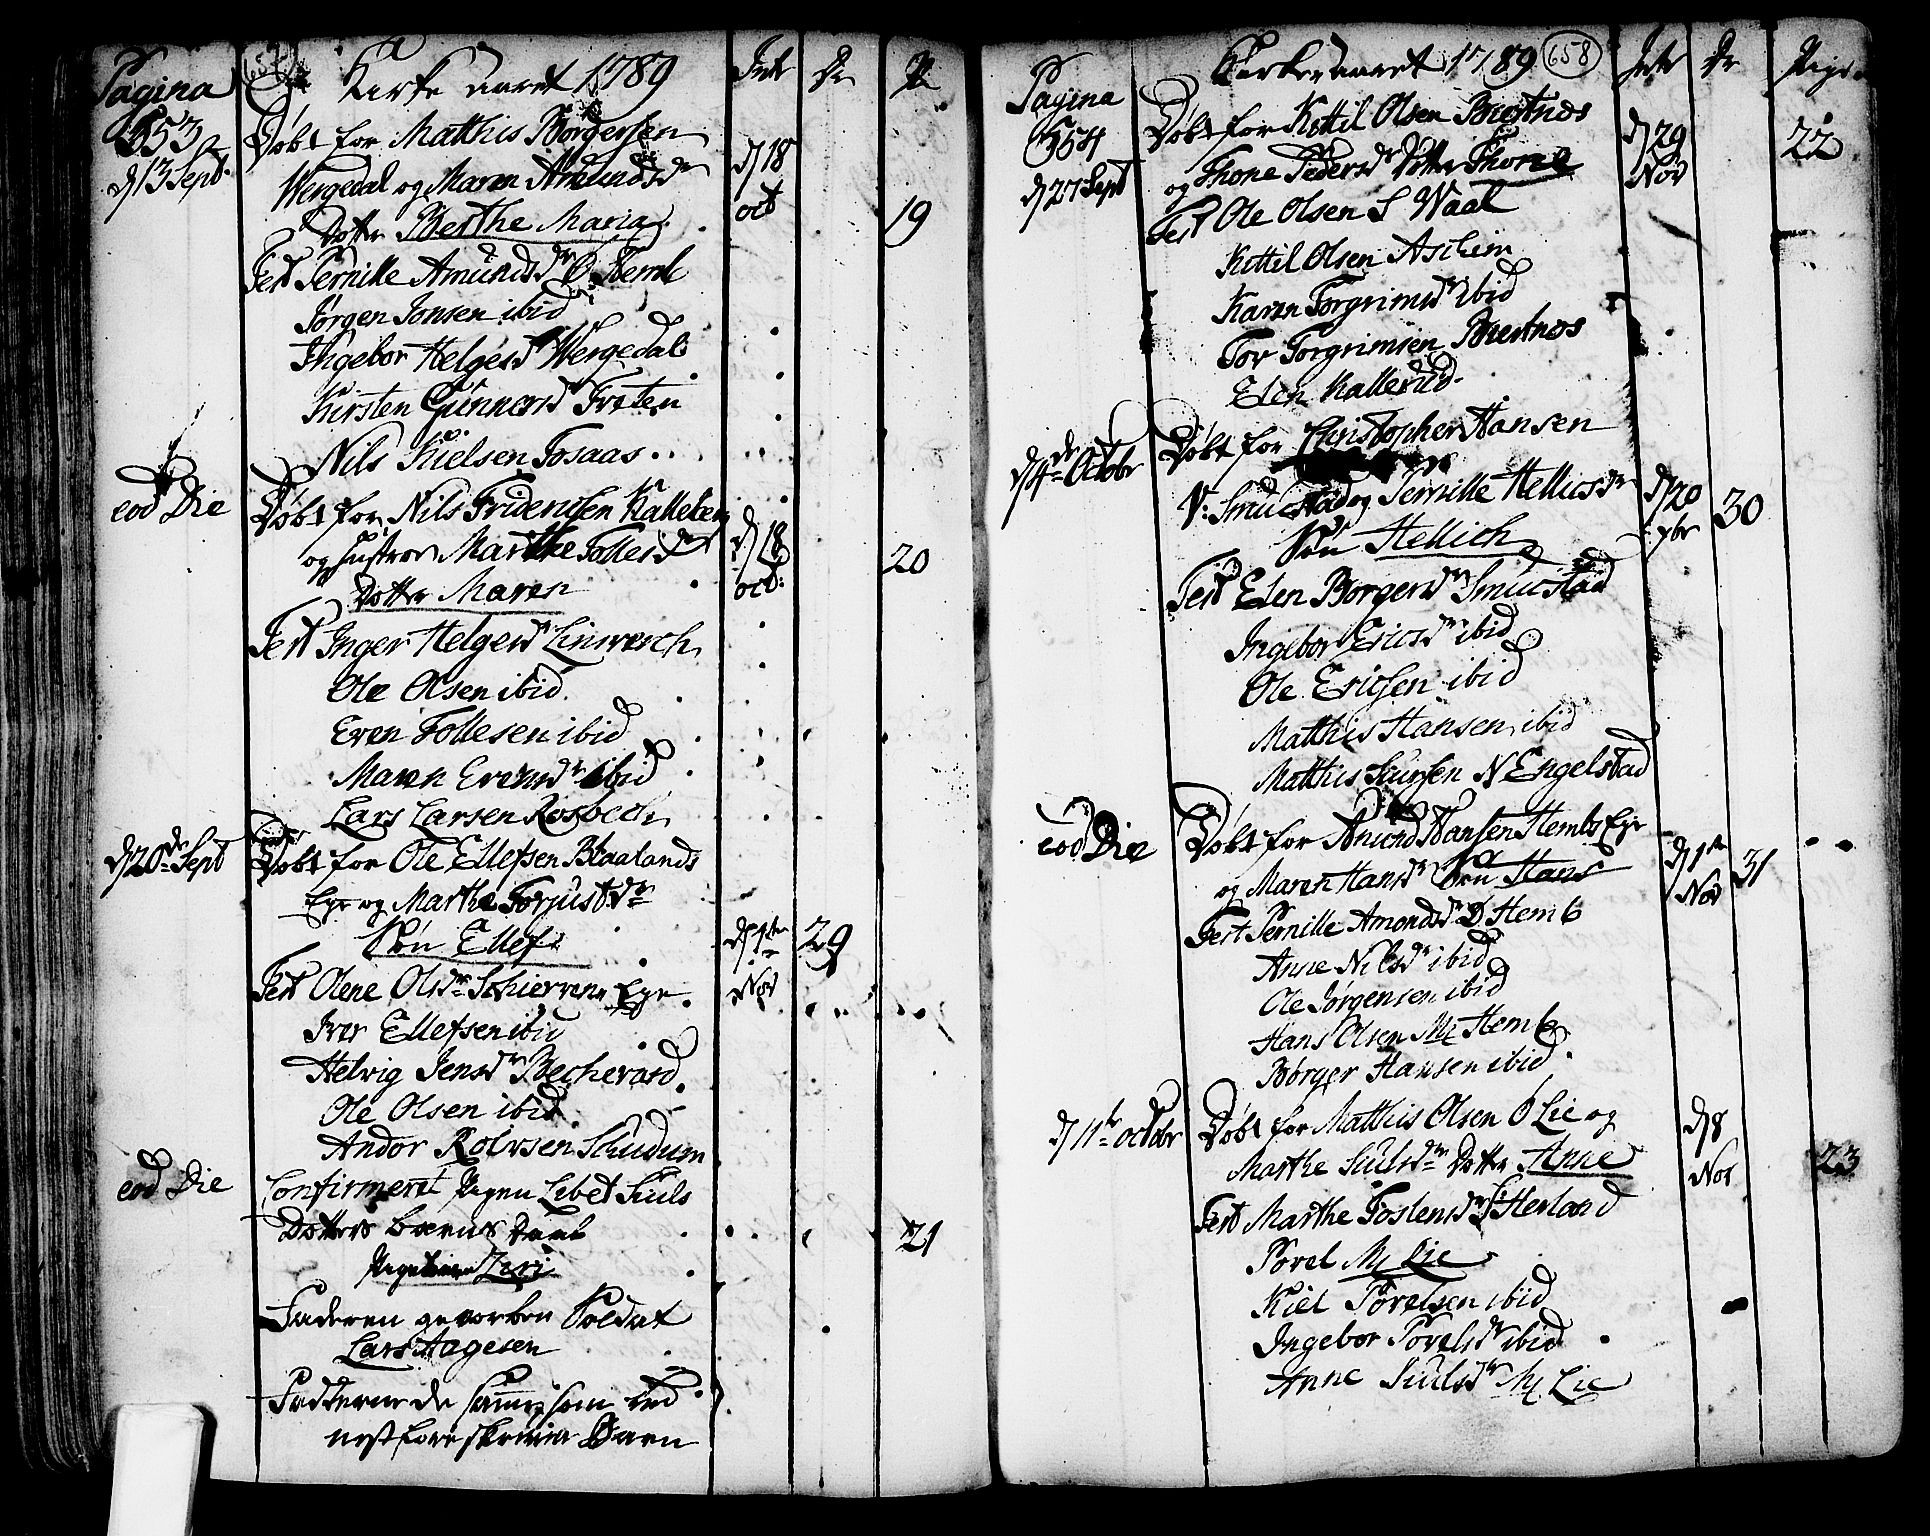 Pagina
653
Kirke aaret 1789
Intr
Dr
P
d 13 Sept.
Døbt for Matthis Borgersen
Wergedal og Maren Amunds dr
Dotter Berthe Maria
d 18
oct
19
Test Pernille Amunds dr Ø Hemb
Jørgen Jonsen ibid
Ingebor Helges dr Wergedal
Kirsten Gunners dr Fraten
Nils Nielsen Fosaas
eod Die
Døbt for Nils Fridensen Kalleberg
og hustroe Marthe Tolles dr
Dotter Maren
d 18
oct:
20
Test Inger Helges dr Linverch
Ole Olsen ibid
Even Tollesen ibid
Maren Evens dr ibid
Lars Larsen Rosbech
d 20 de Sept
Døbt for Ole Ellefsen Blaalands
Eye og Marthe Torjust dr
Søn Ellef
d 1ste
Nov
29
Test Olene Ols dr Schierven Eye
Iver Ellefsen ibid
Helvig Jens dr Becherasd
Ole Olsen ibid
Andor Rolvsen Schudum
eod Die
Confirmeret Pigen Lebet Siuls
Dotters barns Daab
Pigebarn Ziri
21
Faderen geworben Soldat
Lars Aagesen
Fadderne de samme som ved
nest foreskrevne Barn
Pagina
654
Kirkeaaret 1789
658
Intr
Dr
Pige
d 27 Sept
Døbt for Kittil Olsen Buestnes
og Thone Peders dr Dotter Thone
d 29
Nov
22
Test Ole Olsen S Waal
Kittil Olsen Aschim
Karen Torgrims dr ibid
Tov Torgrimsen Buestnes
Elen Kallerud
d 4 de Octobr
Døbt for Christopher Hansen
N: Smucstad og Pernille Hellics dr
Søn Hellich
d 20
30
Test Elen Borgers dr Smucstad
Ingebor Erics dr ibid
Ole Ericsen ibid
Matthis Hansen ibid
Matthis Siursen N Engelstad
eod Die
Døbt for Amund Hansen Hembs Eye
og Maren Hans dr Søn Hans
d 1ste
Nov
31
Test Pernille Amonds dr Ø Hemb
Anne Nils dr ibid
Ole Jørgensen ibid
Hans Olsen M Hemb
Børger Hansen ibid
d 11te octobr
Døbt for Matthis Olsen Ø Lie og
Marthe Siuls dr Dotter Anne
d 8
Nov
23
Test Marthe Tostens dr Herland
Povel M Lie
Kiel Povelsen ibid
Ingebor Povels dr ibid
Anne Siuls dr M Lie